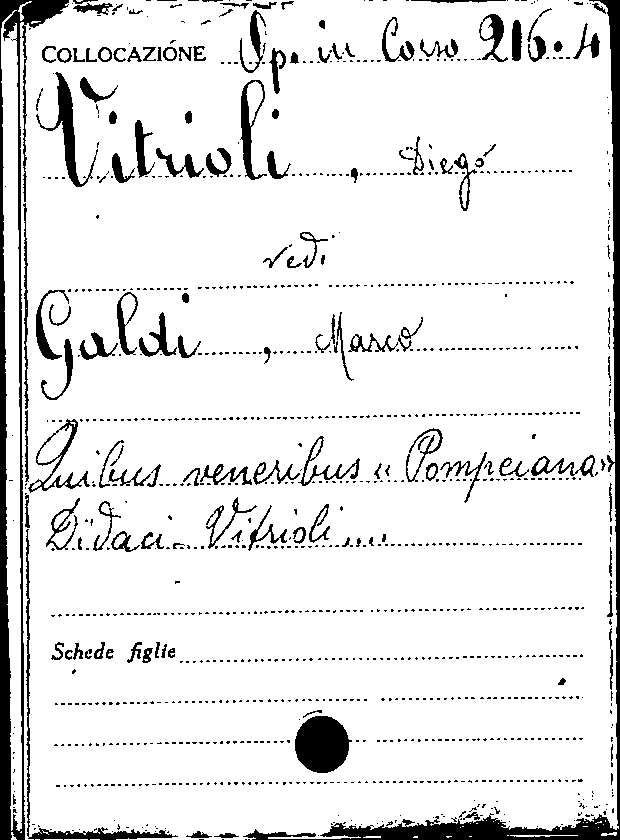 COLLOCAZIÓNE Op. in Corso 216.4
Vitrioli, Diego
vedi
Galdi, Marco
Quibus veneribus « Pompeiana»
Didaci Vitrioli....
Schede figlie